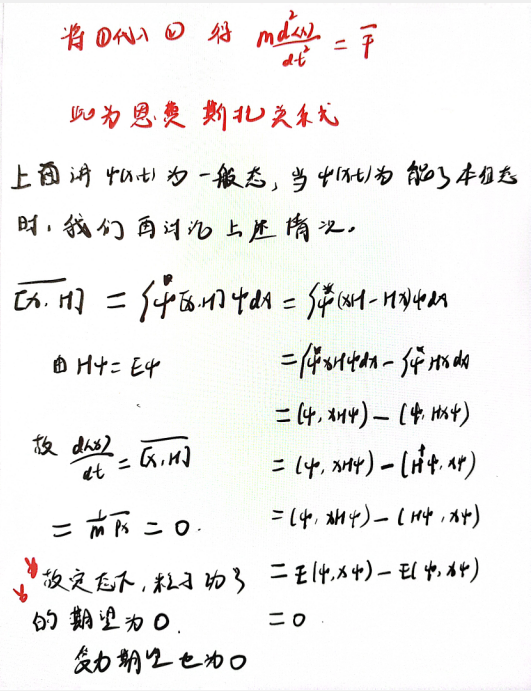 将①代入② 得 m d²⟨x⟩/dt² = F̄
此为恩费斯托关系式
上面讲 ψ(x,t) 为一般态，当 ψ(x,t) 为能量本征态
时，我们再讨论上述情况。
\overline{[x, H]} = ∫ψ*[x,H]ψdx = ∫ψ*(xH - Hx)ψdx
由 Hψ = Eψ
= ∫ψ*xHψdx - ∫ψ*Hxdx
= (ψ, xHψ) - (ψ, Hxψ)
故 d⟨x⟩/dt = \overline{[x,H]}
= (ψ, xHψ) - (H†ψ, xψ)
= 1/m \overline{Px} = 0.
= (ψ, xHψ) - (Hψ, xψ)
故定态下，粒子动量
= E(ψ,xψ) - E(ψ, xψ)
的期望为0.
= 0
受力期望也为0